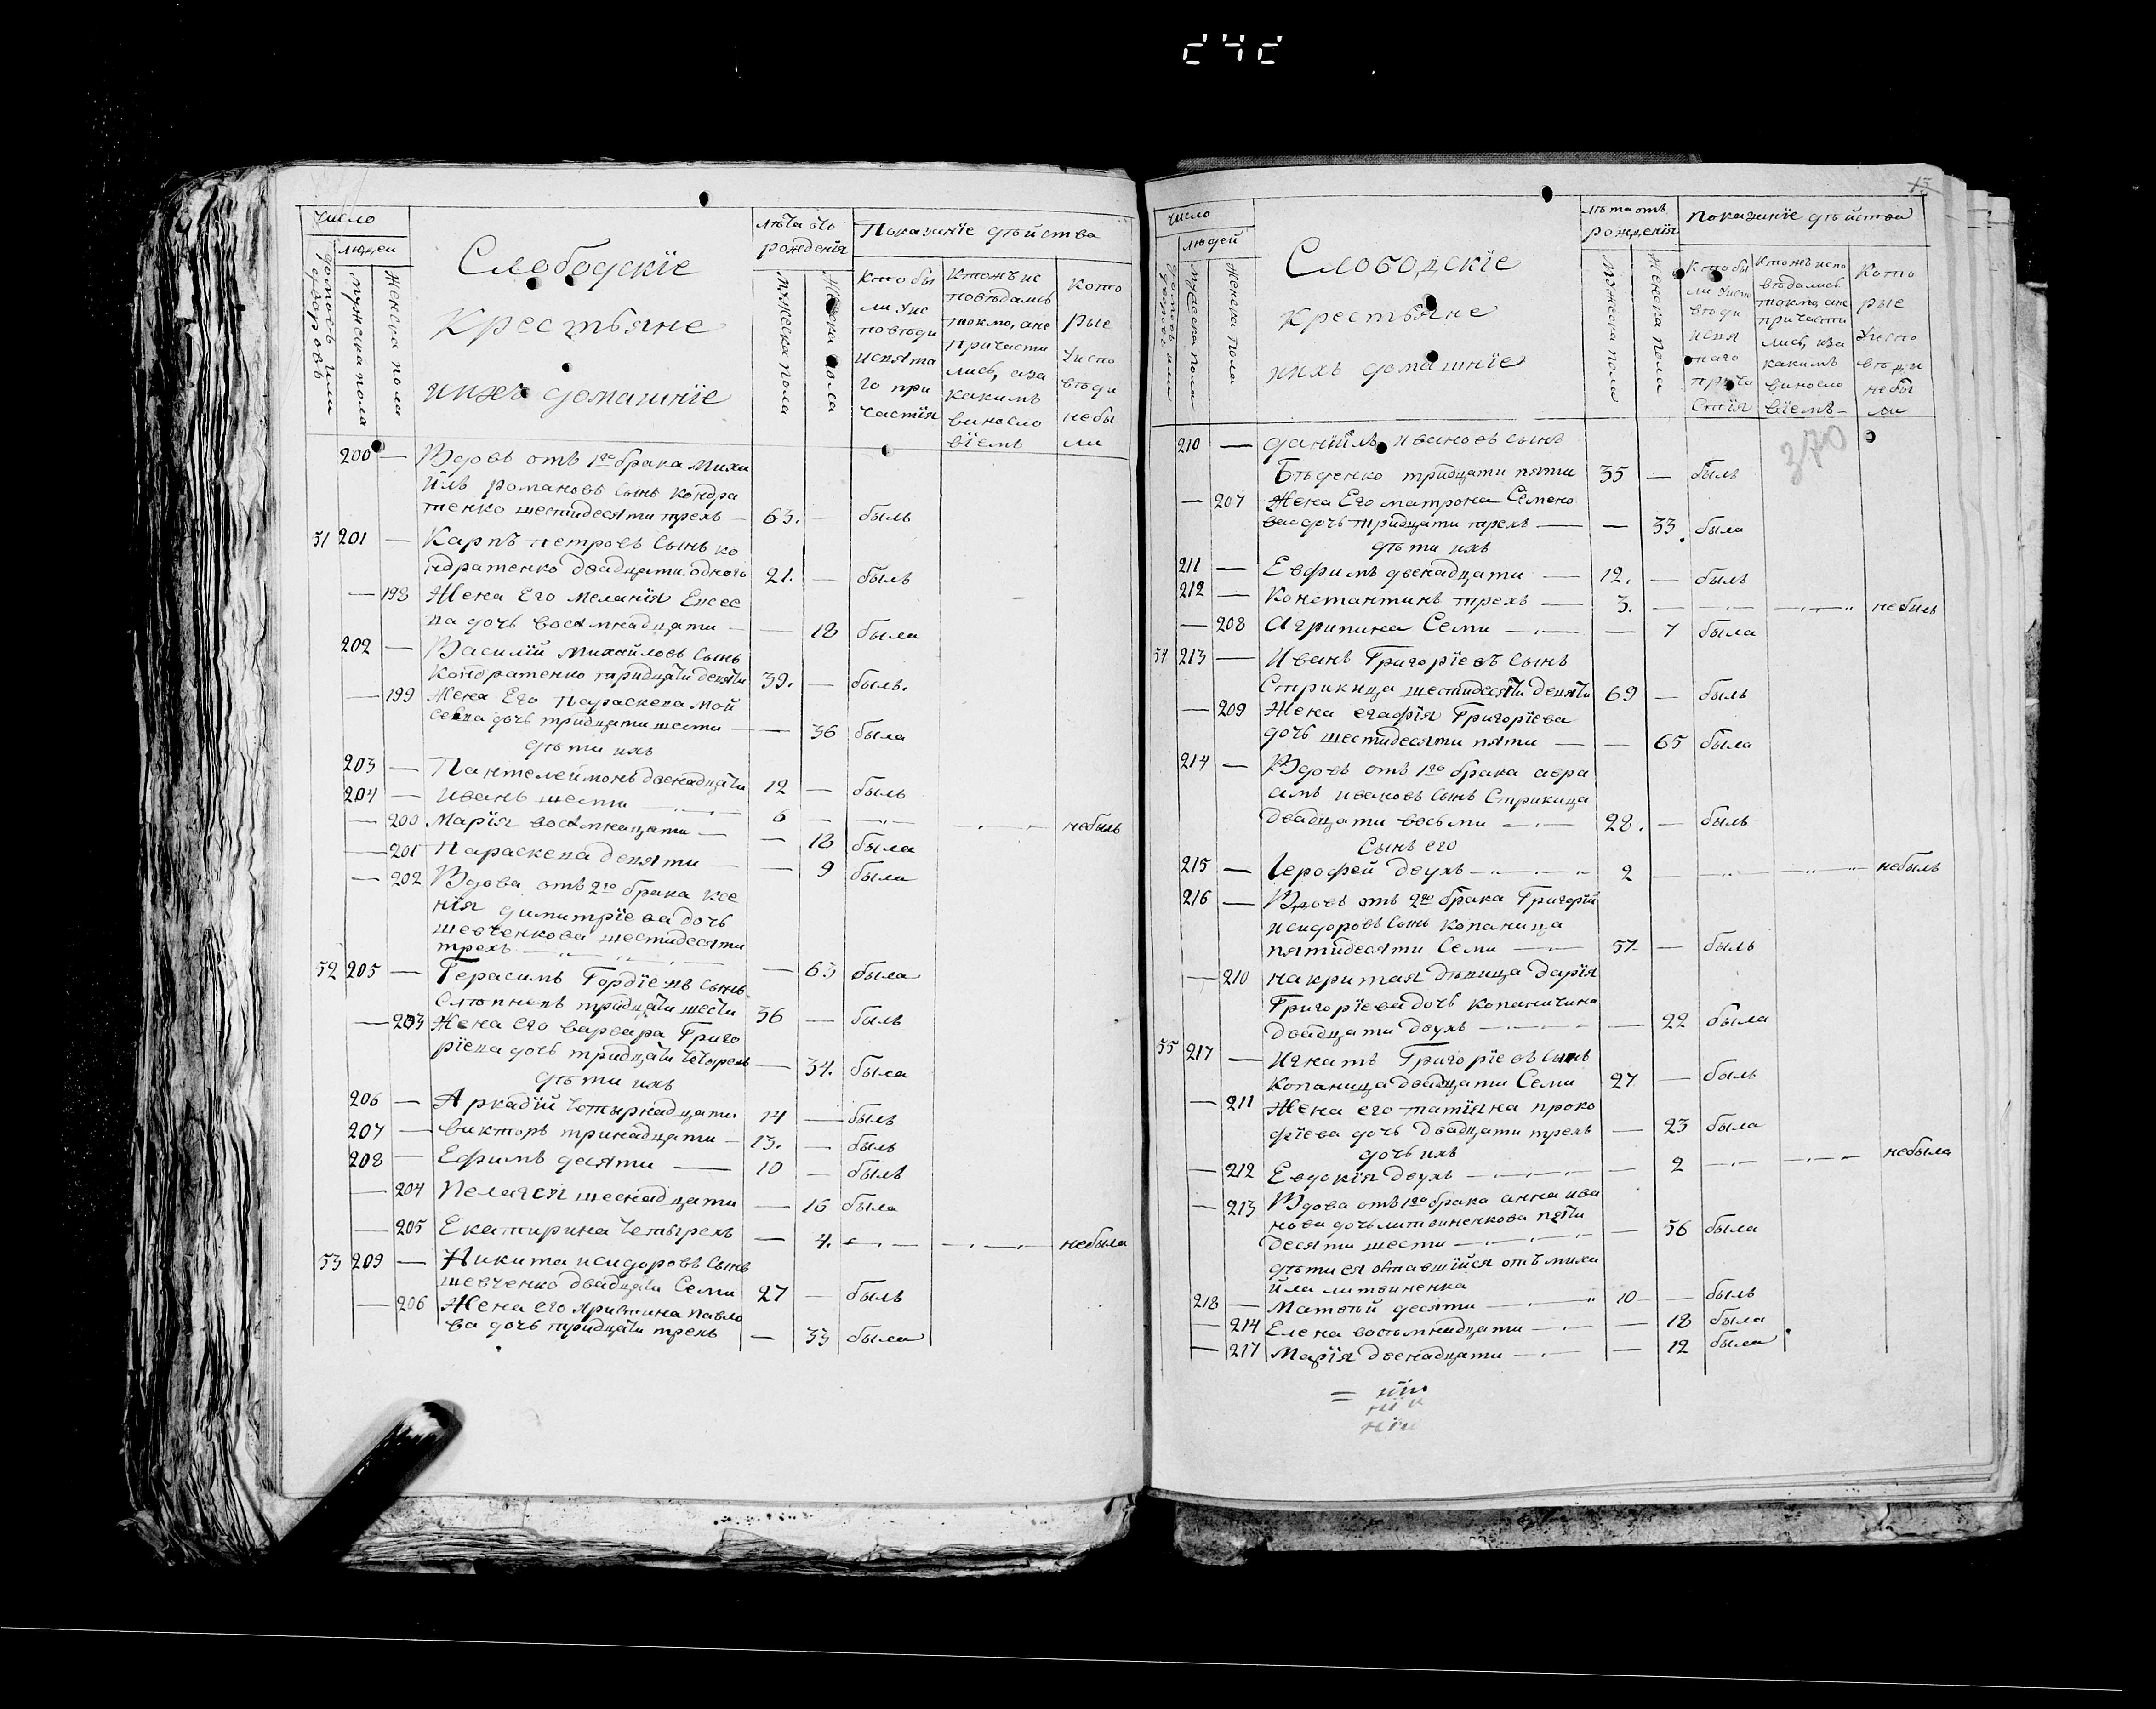 число
людей
домовъ или дворовъ
мужеска пола
Женска пола
Слободскїе
Крестьяне
ихъ домашнїе
лѣта отъ
рожденїя
мужеска пола
Женска пола
Показанїе дѣйства
Кто бы
ли уис
повѣди
исвята
го при
частїя
Ктожъ ис
повѣдались
токмо, ане
причасти
лись, иза
какимъ
винносло
вїемъ
кото
рые
уиспо
вѣди
небы
ли
200 — Вдовъ отъ 1го брака Миха
йлъ романовъ Сынъ Кондра
тенко шестидесяти трехъ — 63. — былъ
51 201 — Карпъ петровъ Сынъ ко
ндратенко двадцати одного 21. — былъ
— 198 Жена Его Меланїя
на дочь восемнадцати — — 18 была
202 — Василїй Михайловъ Сынъ
Кондратенко тридцати девяти 39. — былъ.
— 199 Жена Его Параскева Мой
сеева дочь тридцати шести — — 36 была
дѣти ихъ
203 — Пантелеймонъ двенадцати 12 — былъ
204 — Иванъ шести 6 — небылъ
— 200 Марїя восемнацати — — 18 была
— 201 Параскева девяти — — 9 была
— 202 Вдова отъ 2го брака ксе
нїя димитрїева дочь
шевченкова шестидесяти
трехъ — 63 была
52 205 — Герасимъ Гордїевъ Сынъ
тридцати шести 36 — былъ
— 203 Жена его варвара Григо
рїева дочь тридцати четырехъ — 34. была
дѣти ихъ
206 — Аркадїй четырнадцати 14 — былъ
207 — викторъ тринадцати — 13. — былъ
208 — Ефимъ десяти — 10 — былъ
— 204 Пелагея шеснадцати — 16 была
— 205 Екатирина четырехъ — 4. небыла
53 209 — Никита исидоровъ Сынъ
шевченко двадцати Семи 27 — былъ
— 206 Жена его павло
ва дочь тридцати трехъ — 33 была
15
число
людей
домовъ или дворовъ
мужеска пола
Женска пола
Слободскїе
крестьяне
ихъ домашнїе
лѣта отъ
рожденїя
мужеска пола
Женска пола
показанїе дѣйства
Кто бы
ли уиспо
вѣди
исвя
таго
прича
стїя
Ктожъ испо
вѣдались
токмо, ане
причасти
лись, иза
какимъ
виносло
вїемъ
Кото
рые
уиспо
вѣди
небы
ли
370
210 — данїилъ ивановъ сынъ
Бѣденко тридцати пяти 35 — былъ
— 207 Жена Его матрона Семено
ва дочь тридцати трехъ — — 33. была
дѣти ихъ
211 — Евфимъ двенадцати — 12. — былъ
212 — Константинъ трехъ — 3. — небылъ
— 208 Агрипина Семи — — 7 была
54 213 — Иванъ Григорїевъ Сынъ
Стрикица шестидесяти девяти 69 — былъ
— 209 Жена Григорїева
дочь шестидесяти пяти — — 65 была
214 — Вдовъ отъ 1го брака авра
амъ ивановъ Сынъ Стрикица
двадцати восьми — 28. — былъ
Сынъ его
215 — Іерофей двухъ 2 — небылъ
216 — Вдовъ отъ 2го брака Григорїй
исидоровъ Сынъ Копаница
пятидесяти Семи 57 — былъ
— 210 накритая дѣвица Дарїя
Григорїева дочь Копаничина
двадцати двухъ — — 22 была
55 217 — Игнатъ Григорїевъ Сынъ
Копаница двадцати Семи 27 — былъ
— 211 Жена его татїяна проко
фїева дочь двадцати трехъ — 23 была
дочь ихъ
— 212 Евдокїя двухъ — — 2 небыла
— 213 Вдова отъ 1го брака анна ива
нова дочь литвиненкова пяти
десяти шести — — 56 была
дѣти ея оставшїйся отъ миха
йла литвиненка
218 — Матвѣй десяти 10 — былъ
— 214 Елена восьмнадцати — — 18 была
— 217 Марїя двенадцати — — 12 была